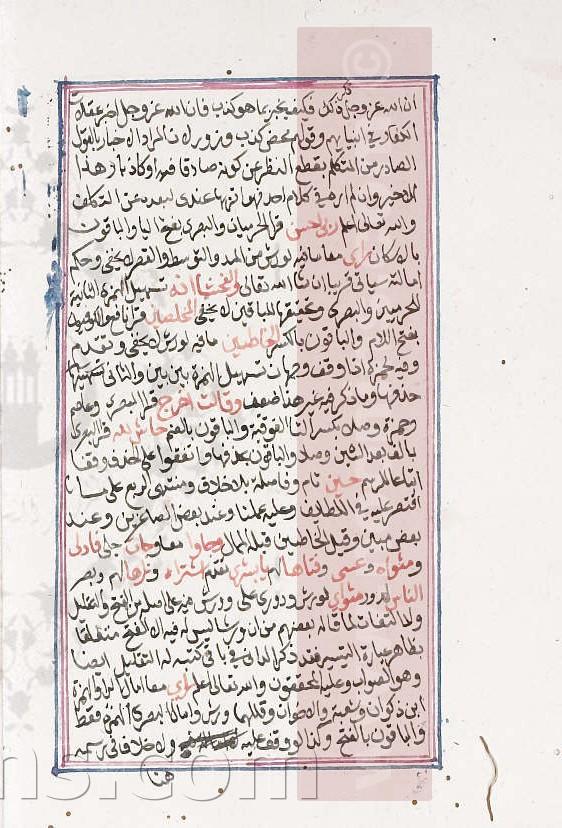 ان الله عز وجل ذكر ذلك فكيف يخبر بما هو كذب فان الله عز وجل اخبر عن
الكفار في انبيائهم وقولهم محض كذب وزور لان المراد الاخبار بالقول
الصادر من المتكلم بقطع النظر عن كونه صادقا فيه او كاذبا وهذا
الاخير وان لم اره في كلام احد فهو عندي لبعده عن التكلف
والله تعالى اعلم ربي احسن قرا الحرميان والبصري بفتح اليا والباقون
بالاسكان راى معا ما فيه لورش من المد والتوسط والقصر لا يخفى وحكم
امالته سياتي قريبا ان شا الله تعالى والفحشاء انه تسهيل الهمزة الثانية
للحرميين والبصري وتحقيقها للباقين لا يخفى المخلصين قرا نافع والكوفيون
بفتح اللام والباقون بالكسر الخاطئين ما فيه لورش لا يخفى وتقدم
وفيه لحمزة اذا وقف وجهان تسهيل الهمزة بين بين والثاني
حذفها وما ذكر فيه غير هذا ضعيف وقالت اخرج قرا البصري وعاصم
وحمزة وصلا بكسر التا الفوقية والباقون بالضم حاش لله قرا البصري
بالف بعد الشين وصلا والباقون بحذفها واتفقوا على الحذف وقفا
اتباعا للرسم حين تام وفاصلة بلا خلاف ومنتهى الربع على ما
اقتصر عليه في اللطايف وعليه عملنا وعند بعض الصاغرين وعند
بعض مبين وقيل الخاطئين قبله الممال وجاوا معا وجات جلي فادلى
ومثواه وعسى وفتاها لهم يا بشرى لهم اشتراه و نراها لهم وبصر
الناس لدور مثواي لورش ودوري علي وورش فيه على اصله من الفتح والتقليل
ولا التفات لما قاله بعضهم من ان ورشا ليس له فيه الا الفتح متعلقا
بظاهر عبارة التيسير فقد ذكر الداني في باقي كتبه له التقليل ايضا
وهو الصواب وعليه المحققون والله تعالى اعلم راى معا امال الرا والهمزة
ابن ذكوان وشعبة والاخوان وقللهما ورش وامال البصري الهمزة فقط
والباقون بالفتح وكذا لو وقف عليه ولا خلاف في رسمه
هنا
ns.com